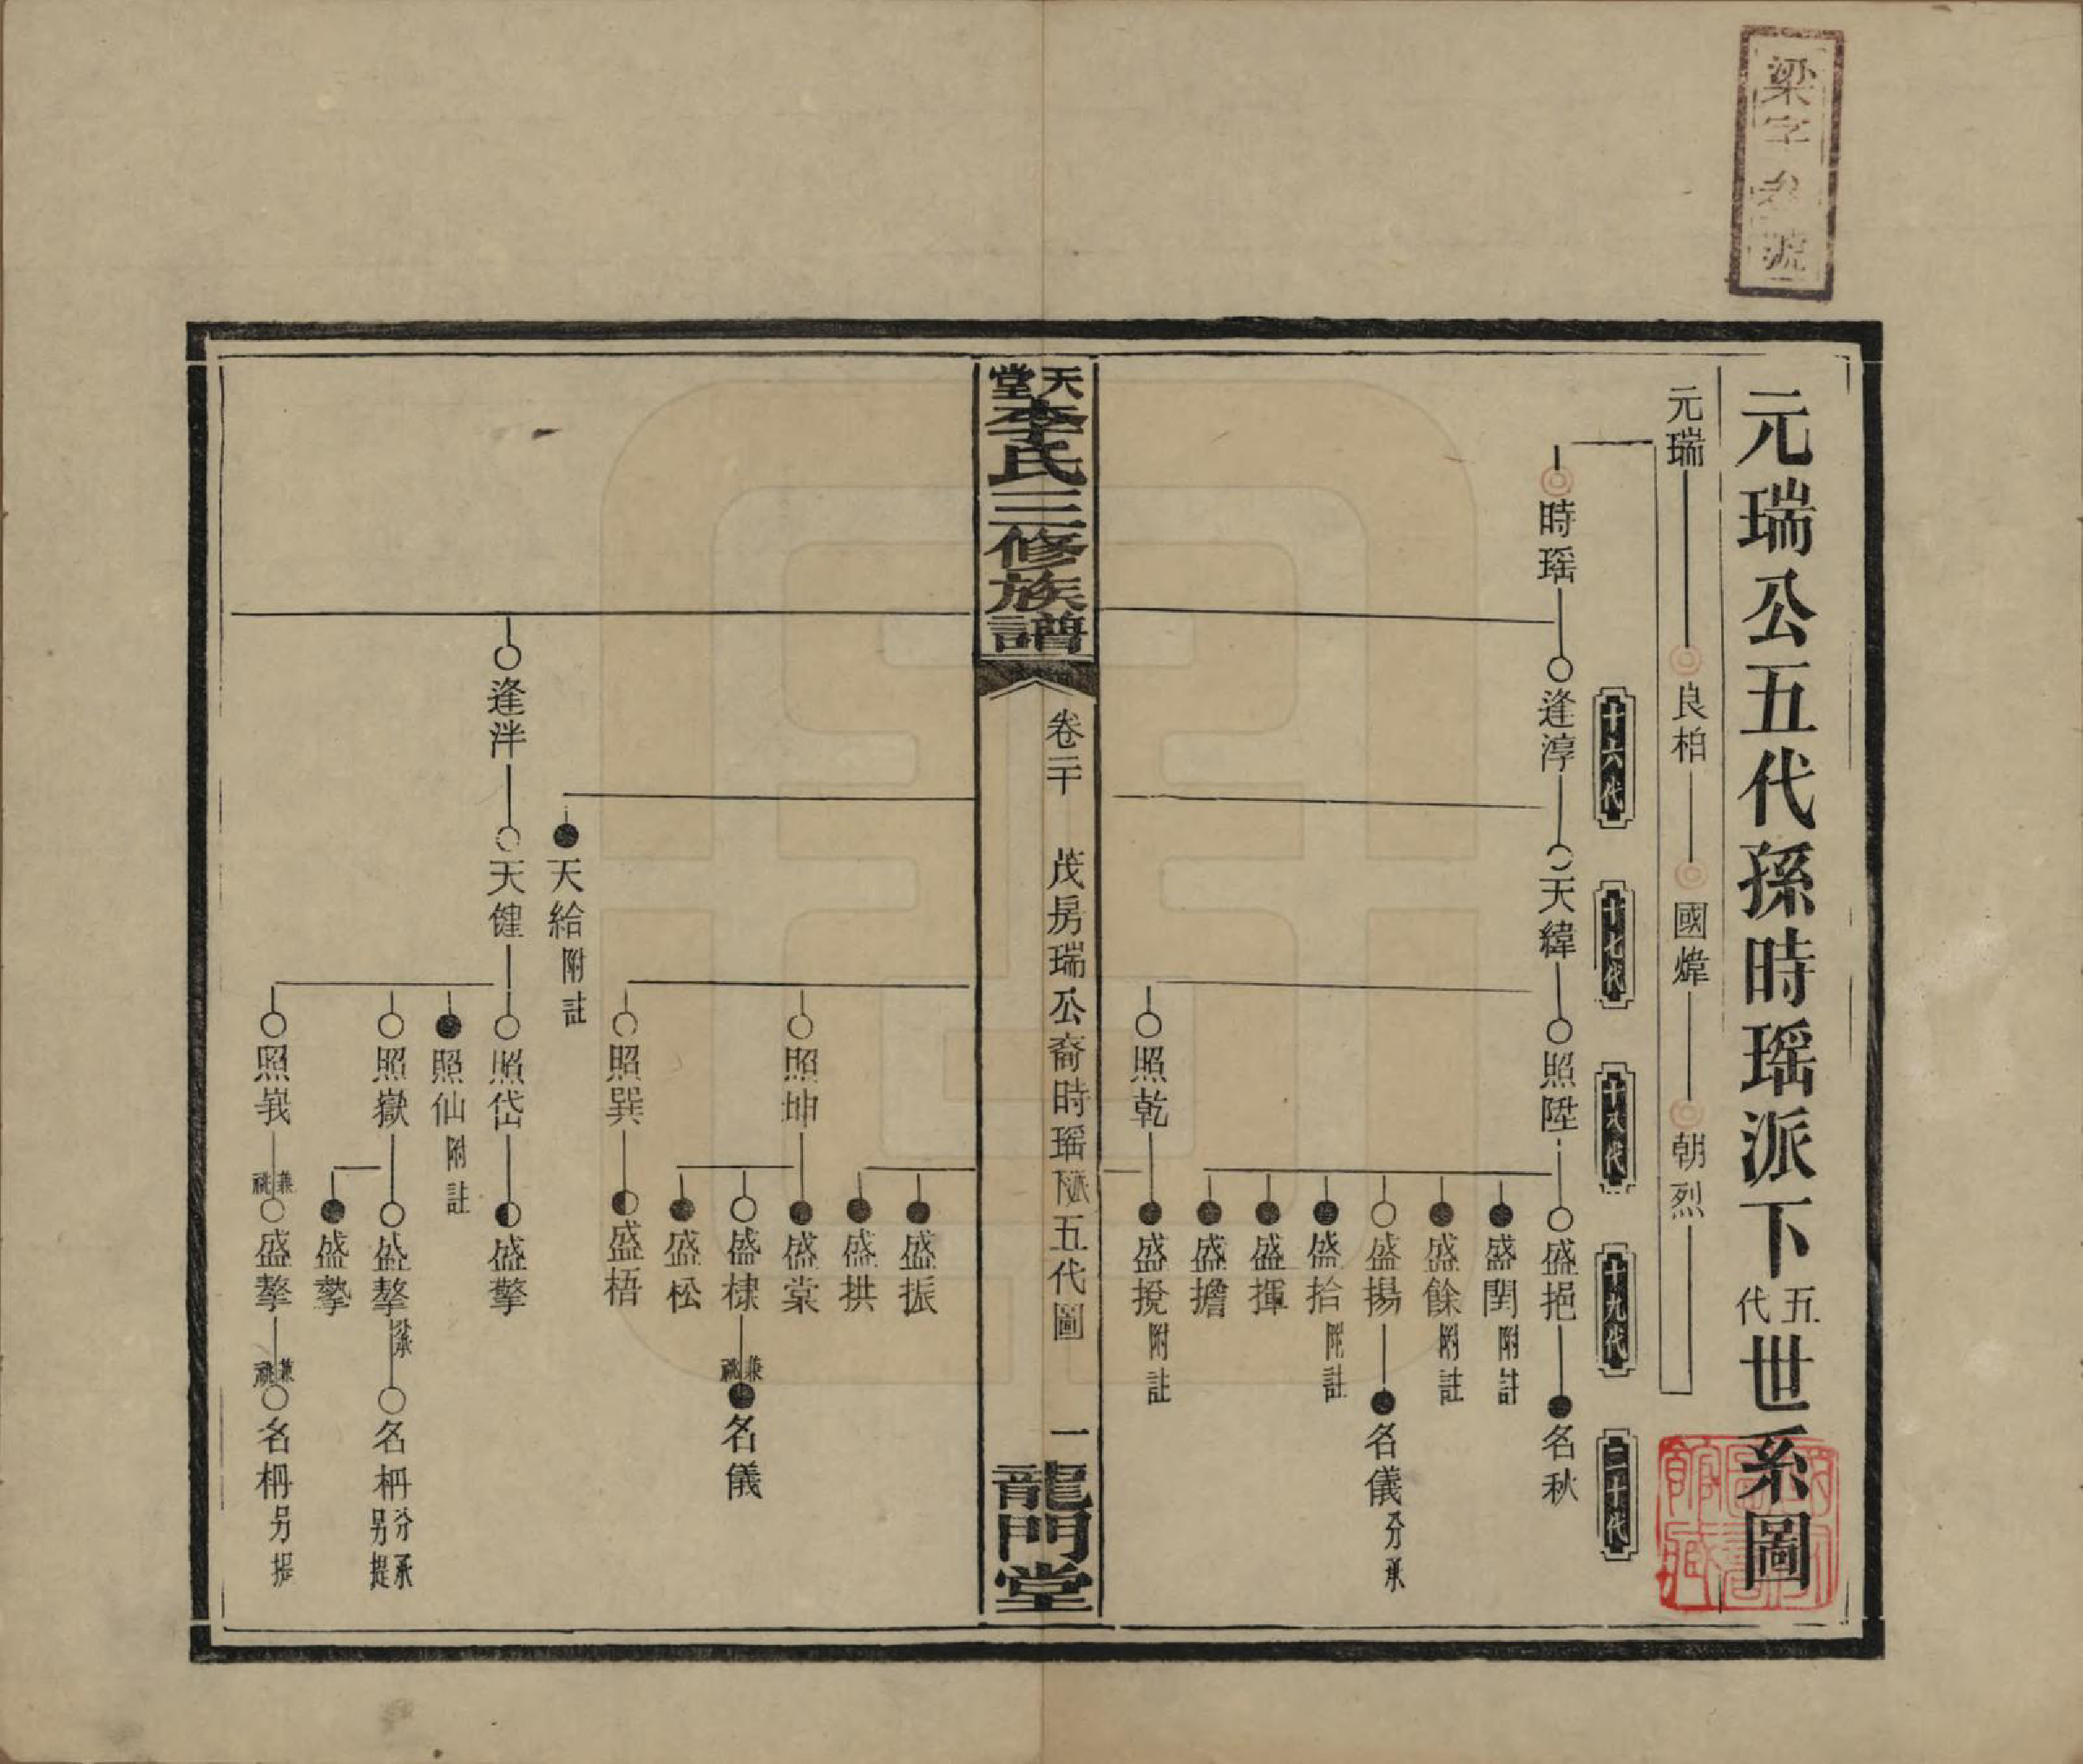 元瑞公五代孫時瑶派下五代世系圖
元瑞 良柏 國煒 朝烈
十六代 十七代 十八代 十九代 二十代
時瑶 逢淳 天緯 照陞 盛挹 名秋
盛閏附註
盛餘附註
盛揚 名儀分承
盛拾附註
盛揮
盛擔
照乾 盛挩附註
天堂李氏三修族譜 卷二十 茂房瑞公裔時瑶派下五代圖 一 龍門堂
盛振
盛拱
照坤 盛棠
盛棣 兼祧 名儀
盛松
照巽 盛梧
天給附註
逢泮 天健 照岱 盛擎
照仙附註
照嶽 盛摮分承 名枬分承另提
盛摰
照峩 兼祧 盛摮 兼祧 名枬另提
梁字 號